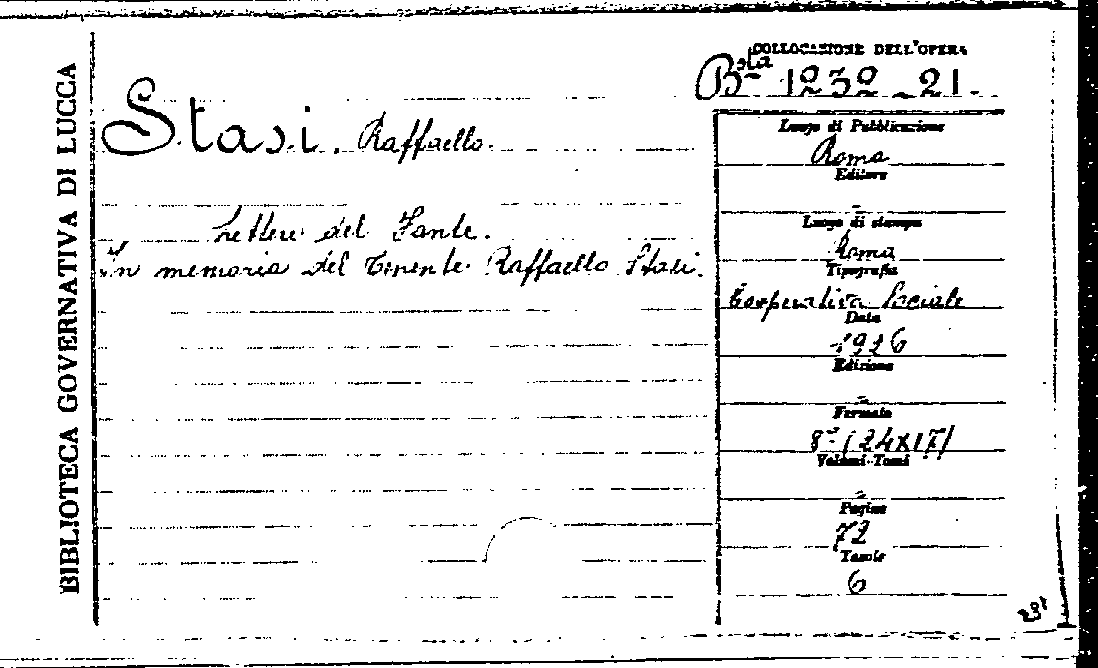 BIBLIOTECA GOVERNATIVA DI LUCCA
COLLOCAZIONE DELL'OPERA
Bsta 1232 - 21.
Stasi. Raffaello.
Lettere del Fante.
In memoria del Tenente Raffaello Stasi.
Luogo di Pubblicazione
Roma
Editore
-
Luogo di stampa
Roma
Tipografia
Cooperativa Sociale
Data
1926
Edizione
-
Formato
8º (24x17)
Volumi-Tomi
-
Pagine
72
Tavole
6